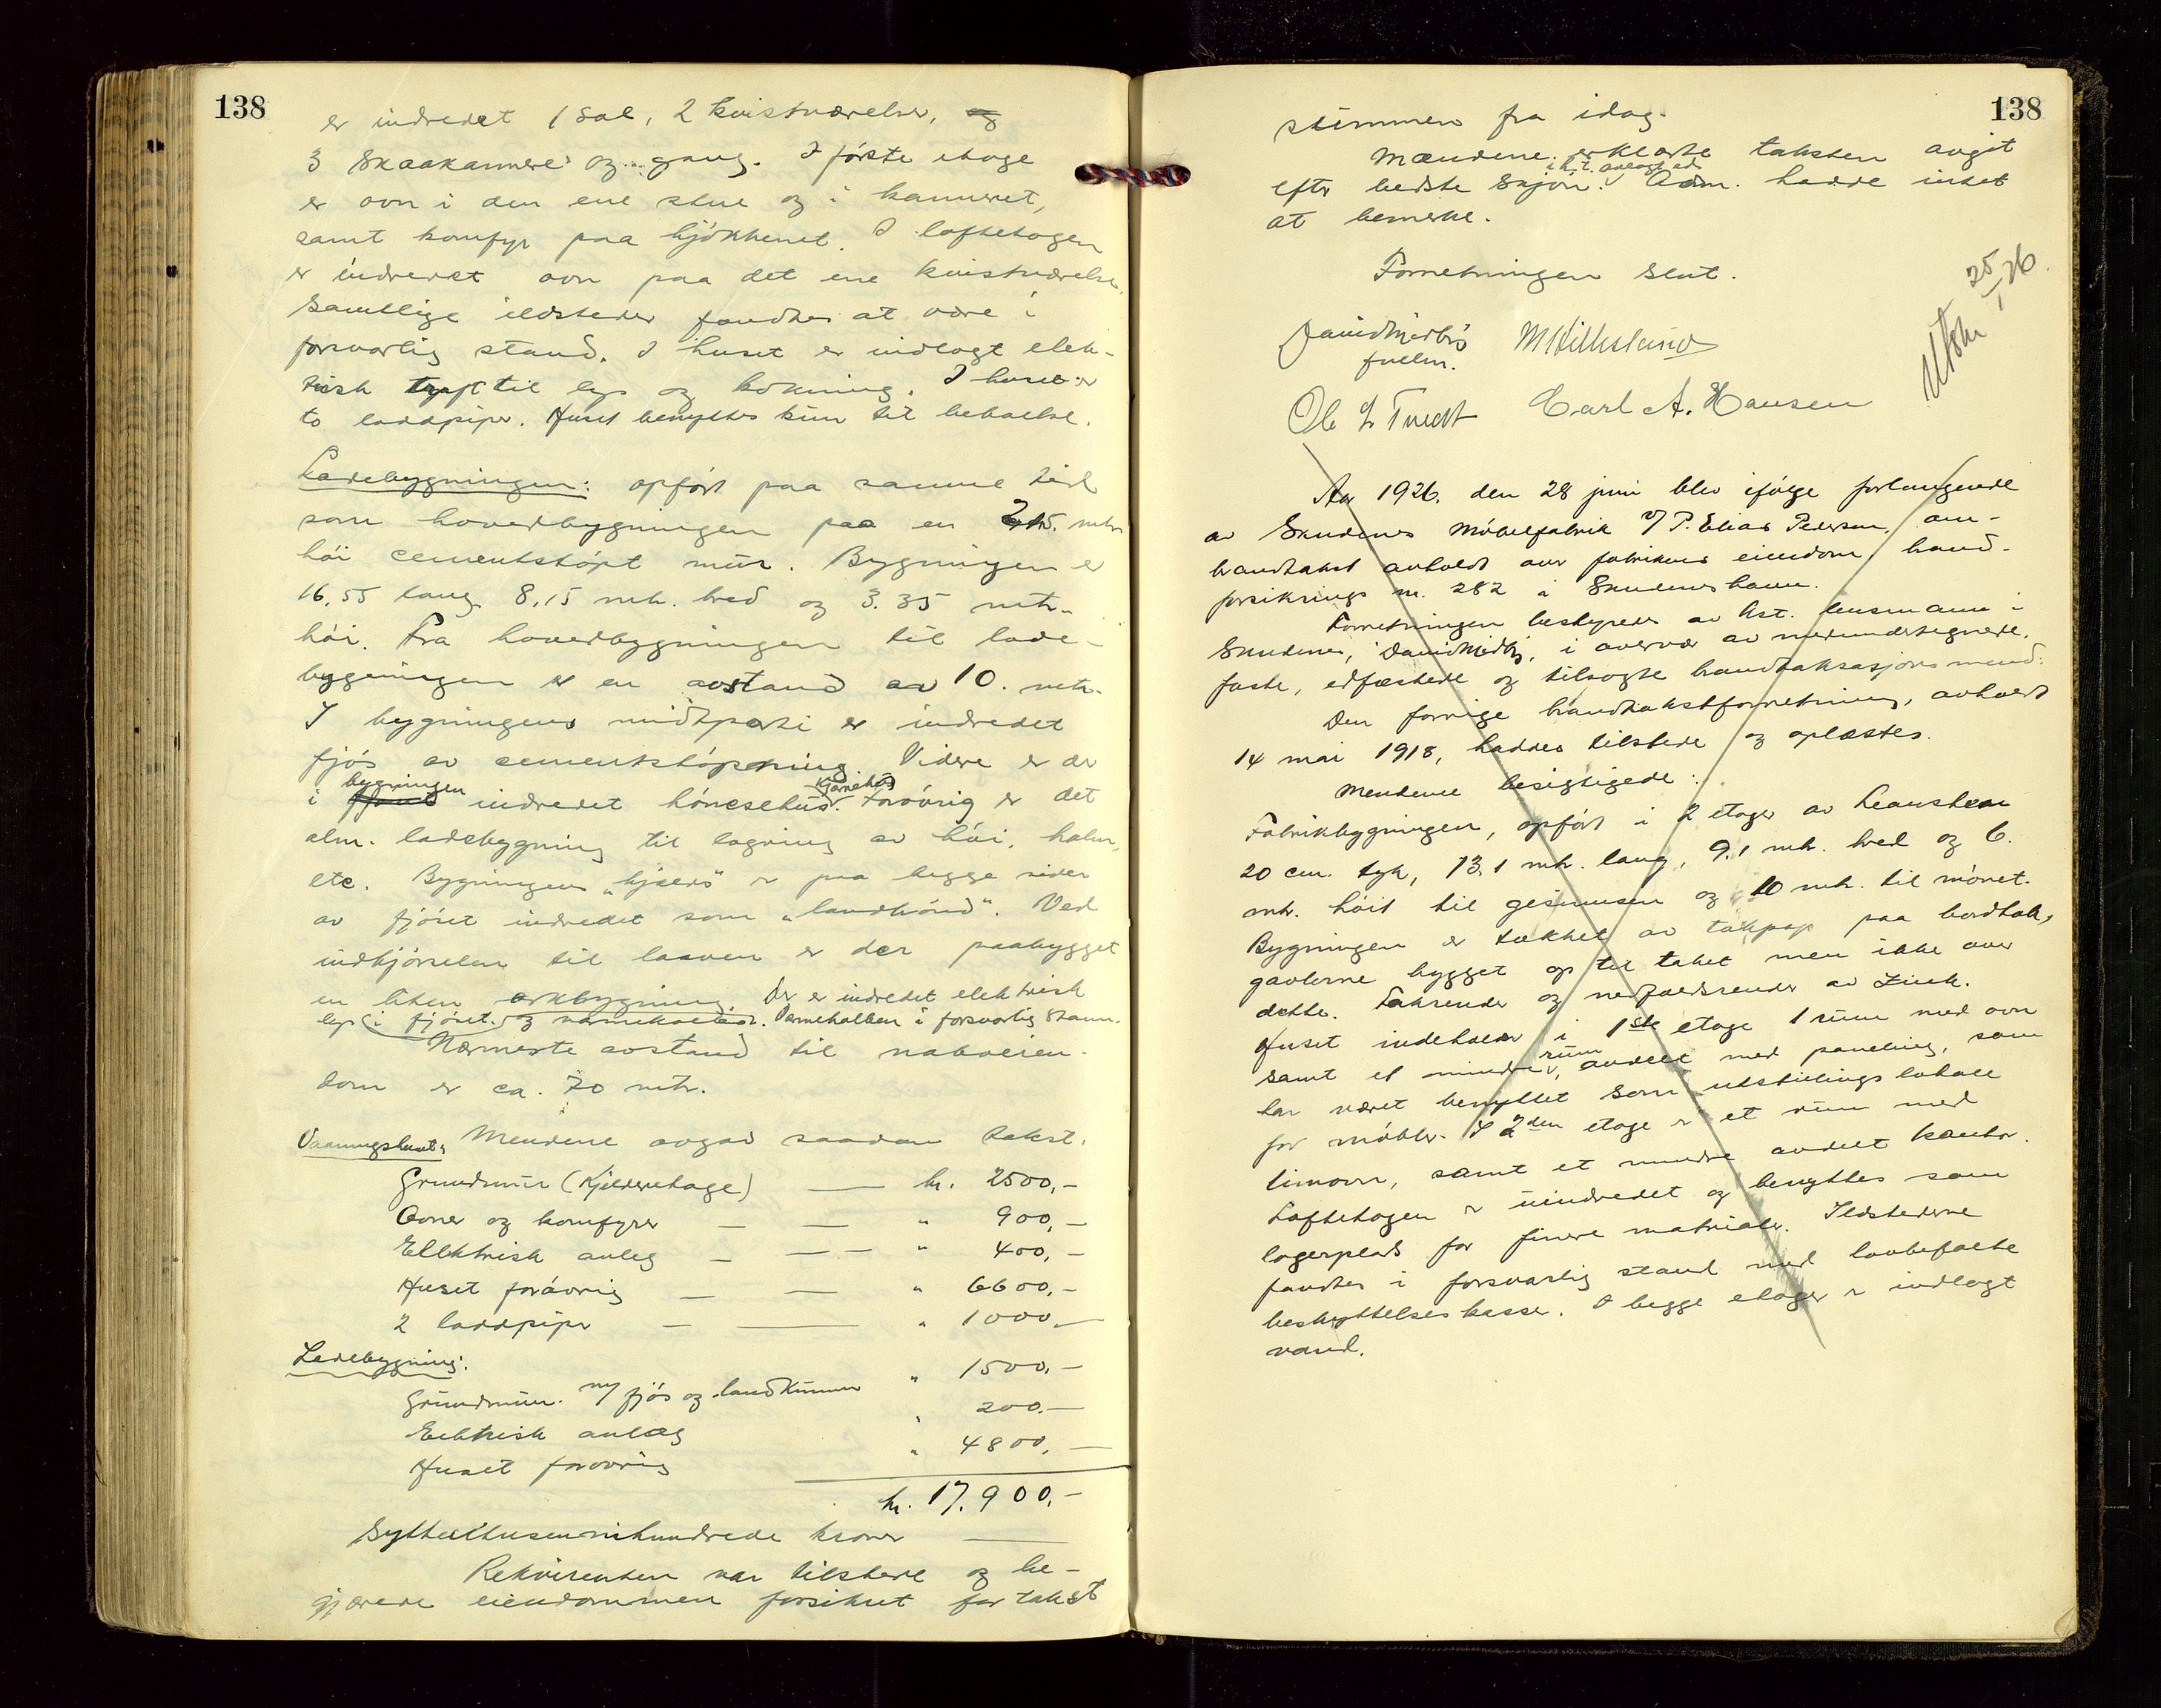 138
er indredet 1 sal, 2 kvistværelser, og
3 skaakammere og gang. I første etage
er ovn i den ene stue og i kammeret,
samt komfyr paa kjøkkenet. I loftetagen
er indredet ovn paa det ene kvistværelse.
Samtlige ildsteder fandtes at være i
forsvarlig stand. I huset er indlagt elek-
trisk til lys og kokning. I huset er
to laddpiper. Huset benyttes kun til beboelse.
Ladebygningen: opført paa samme tid
som hovedbygningen paa en 2,15. mtr.
høi cementstøpt mur. Bygningen er
16,55 lang 8,15 mtr. bred og 3.35 mtr.
høi. Fra hovedbygningen til lade-
bygningen er en avstand av 10. mtr.
I bygningens midtparti er indredet
fjøs av cementstøpning. Videre er der
i bygningen indredet hønsehus. Forøvrig er det
alm. ladebygning til lagring av høi, halm,
etc. Bygningens "kjæld" er paa begge sider
av fjøset indredet som "landkund". Ved
indkjørselen til laaven er der paabygget
en liten arkbygning. Der er indredet elektrisk
lys i fjøset og varmekolbe. Varmekolben i forsvarlig stann.
Nærmeste avstand til naboeien-
dom er ca. 70 mtr.
Vaaningshuset: Mendene avgav saadan takst:
Grundmur (kjelderetage) — kr. 2500,-
Ovner og komfyrer — — " 900,-
Ellektrisk anleg — — — " 400,-
Huset forøvrig — — " 6600,-
2 laddpiper — — " 1000,-
Ladebygning:
Grundmur m/ fjøs og landkummer " 1500,-
Elektrisk anlæg " 200.-
Huset forøvrig " 4800,-
kr. 17.900,-
Syttentusennihundrede kroner —
Rekvirenten var tilstede og be-
gjærede eiendommen forsikret for takst
138
stemmen fra idag.
Mændene erklærte taksten avgit
efter bedste skjøn. Adm. hadde intet
at bemerke.
Forretningen slut.
25/1 26.
David Medbø M Hillesland
fullm.
Ole L Tvedt Carl A. Hansen
Aar 1926. den 28 juni blev ifølge forlangende
av Skudenes Møbelfabrik v/ P. Elias Pedersen, om-
brandtakst avholdt over fabrikens eiendom, brand-
forsikrings nr. 282 i Skudeneshavn.
Forretningen bestyredes av kst. lensmann i
Skudenes, David Medbø, i overvær av medundertegnede,
faste, edfæstede og tilsagte brandtaksasjonsmend:
Den forrige brandtakstforretning, avholdt
14 mai 1918, haddes tilstede og oplæstes.
Mendene besigtigede:
Fabrikbygningen, opført i 2 etager av Leansten
20 cm. tyk, 13,1 mtr. lang, 9,1 mtr. bred og 6.
mtr. høit til gesimsen og 10 mtr. til mønet.
Bygningen er tækket av takpap paa bordtak,
gavlerne bygget op til taket men ikke over
dette. Takrender og nedfaldsrender av Zink.
Huset indeholder i 1ste etage 1 rum med ovn
samt et mindre rum, avdelt med paneling, som
har været benyttet som utstillingslokale
for møbler. I 2den etage er et rum med
limovn, samt et mindre avdelt kontor.
Loftetagen er uindredet og benyttes som
lagerplads for finere materialer. Ildstederne
fandtes i forsvarlig stand med lovbefalte
beskyttelseskasser. I begge etager er indlagt
vand.